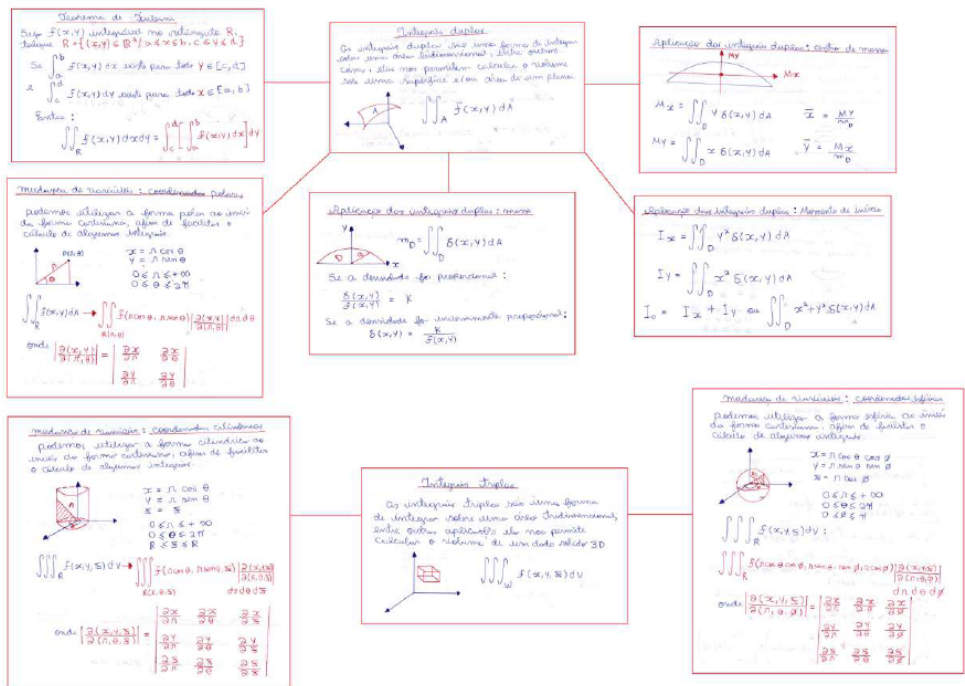 Teorema de Fubini
Seja f(x,y) integrável no retângulo R,
tal que R = {(x,y) ∈ R² / a ≤ x ≤ b, c ≤ y ≤ d}
Se ∫_a^b f(x,y) dx existe para todo y ∈ [c,d]
e ∫_c^d f(x,y) dy existe para todo x ∈ [a,b]
Então:
∬_R f(x,y) dx dy = ∫_c^d [∫_a^b f(x,y) dx] dy
Integrais duplas
As integrais duplas são uma forma de integrar
sobre uma área bidimensional, entre outras
coisas, elas nos permitem calcular o volume
sob uma superfície e/ou área de um plano.
A
∬_A f(x,y) dA
Aplicação das integrais duplas: centro de massa
My
Mx
Mx = ∬_D y δ(x,y) dA
x̄ = My/m_D
My = ∬_D x δ(x,y) dA
ȳ = Mx/m_D
mudança de variáveis: coordenadas polares
podemos utilizar a forma polar ao invés
da forma cartesiana, afim de facilitar o
cálculo de algumas integrais.
P(r,θ)
r
θ
x = r cos θ
y = r sen θ
0 ≤ r ≤ +∞
0 ≤ θ ≤ 2π
∬_R f(x,y) dA → ∬_R(r,θ) f(r cos θ, r sen θ) |∂(x,y)/∂(r,θ)| dr dθ
onde |∂(x,y)/∂(r,θ)| = | ∂x/∂r ∂x/∂θ |
| ∂y/∂r ∂y/∂θ |
Aplicação das integrais duplas: massa
y
D
x
m_D = ∬_D δ(x,y) dA
Se a densidade for proporcional:
δ(x,y)/f(x,y) = K
Se a densidade for inversamente proporcional:
δ(x,y) = K/f(x,y)
Aplicação das integrais duplas: Momento de Inércia
Ix = ∬_D y² δ(x,y) dA
Iy = ∬_D x² δ(x,y) dA
I₀ = Ix + Iy ou ∬_D x² + y² δ(x,y) dA
mudança de variáveis: coordenadas cilíndricas
podemos utilizar a forma cilíndrica ao
invés da forma cartesiana, afim de facilitar
o cálculo de algumas integrais.
x = r cos θ
y = r sen θ
z = z
0 ≤ r ≤ +∞
0 ≤ θ ≤ 2π
R ≤ z ≤ R
∭_R f(x,y,z) dV → ∭_R(r,θ,z) f(r cos θ, r sen θ, z) |∂(x,y,z)/∂(r,θ,z)|
dr dθ dz
onde |∂(x,y,z)/∂(r,θ,z)| = | ∂x/∂r ∂x/∂θ ∂x/∂z |
| ∂y/∂r ∂y/∂θ ∂y/∂z |
| ∂z/∂r ∂z/∂θ ∂z/∂z |
Integrais triplas
As integrais triplas são uma forma
de integrar sobre uma área tridimensional,
entre outras aplicações ela nos permite
calcular o volume de um dado sólido 3D
∭_W f(x,y,z) dV
mudança de variáveis: coordenadas esféricas
podemos utilizar a forma esférica ao invés
da forma cartesiana, afim de facilitar o
cálculo de algumas integrais.
x = r cos θ cos ø
y = r sen θ sen ø
z = r cos ø
0 ≤ r ≤ +∞
0 ≤ θ ≤ 2π
0 ≤ ø ≤ π
∭_R f(x,y,z) dV:
∭_R f(r cos θ cos ø, r sen θ sen ø, r cos ø) |∂(x,y,z)/∂(r,θ,ø)|
dr dθ dø
onde |∂(x,y,z)/∂(r,θ,ø)| = | ∂x/∂r ∂x/∂θ ∂x/∂ø |
| ∂y/∂r ∂y/∂θ ∂y/∂ø |
| ∂z/∂r ∂z/∂θ ∂z/∂ø |